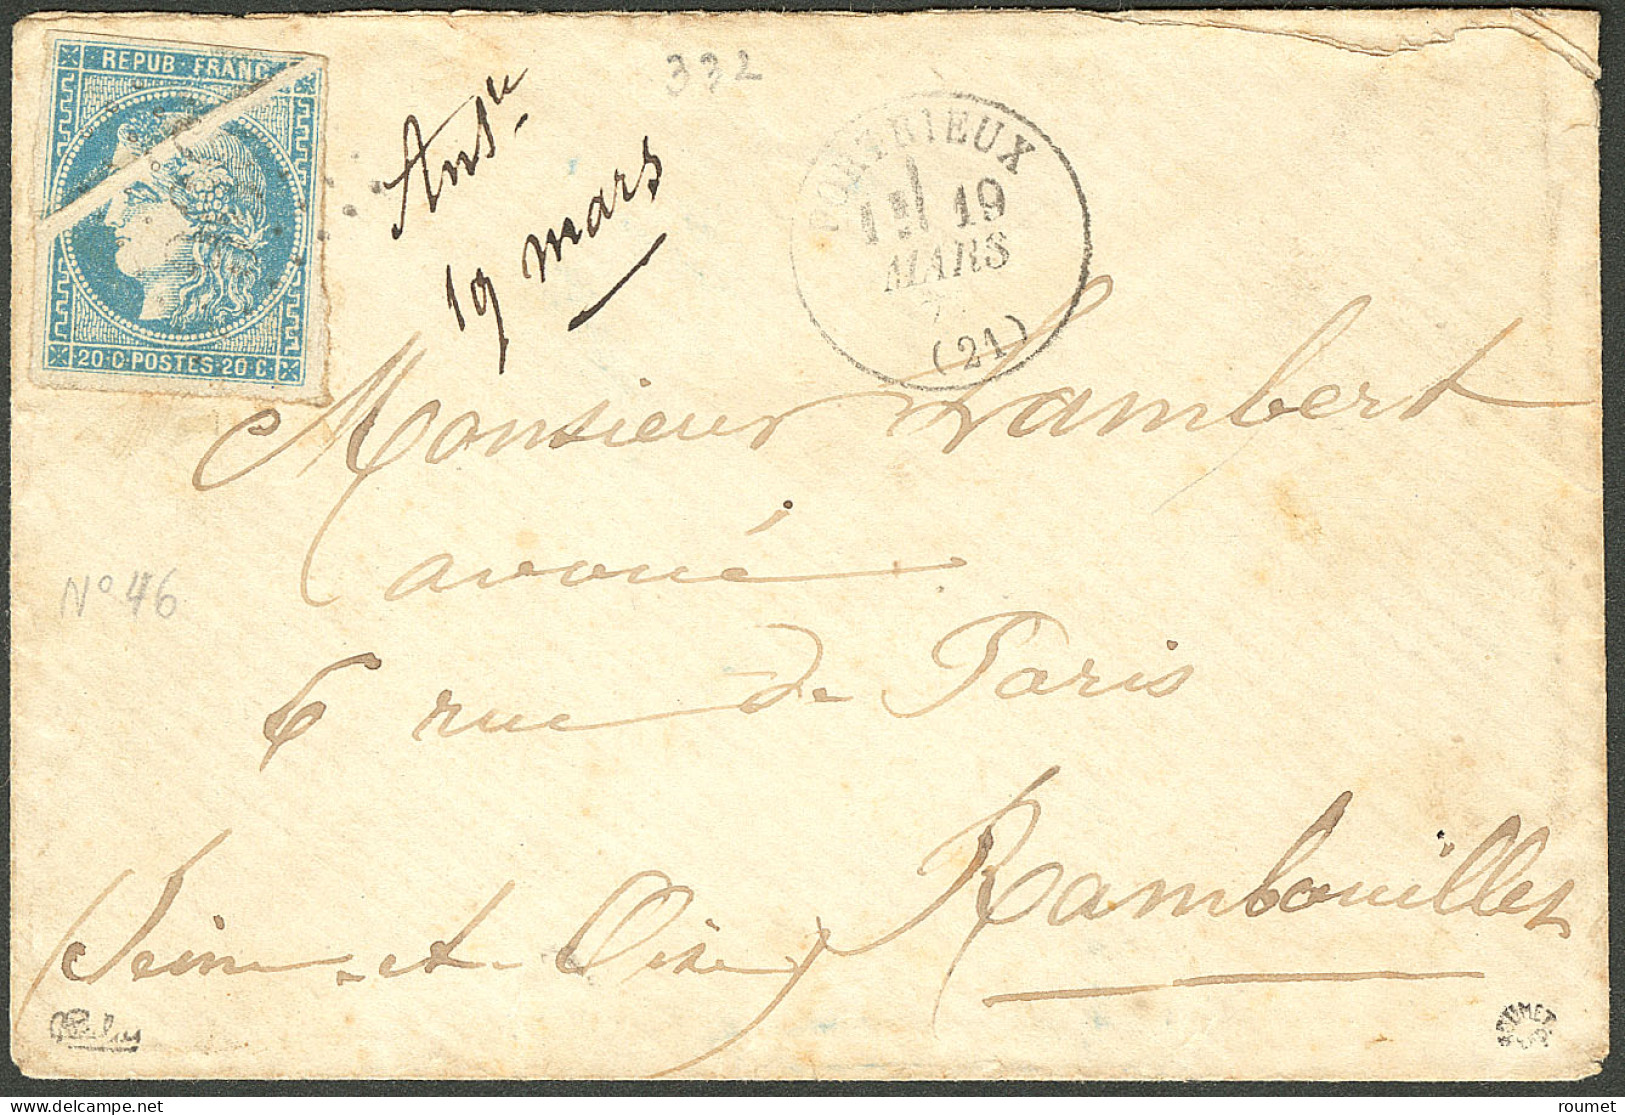 REPUB FRANC
20·C·POSTES·20·C·
332
19 mars
PORTRIEUX
19
MARS
(21)
Monsieur Lambert
avoué
6 rue de Paris
Rambouillet
Seine-et-Oise
N° 46
ROUMET
roumet
delcampe.net